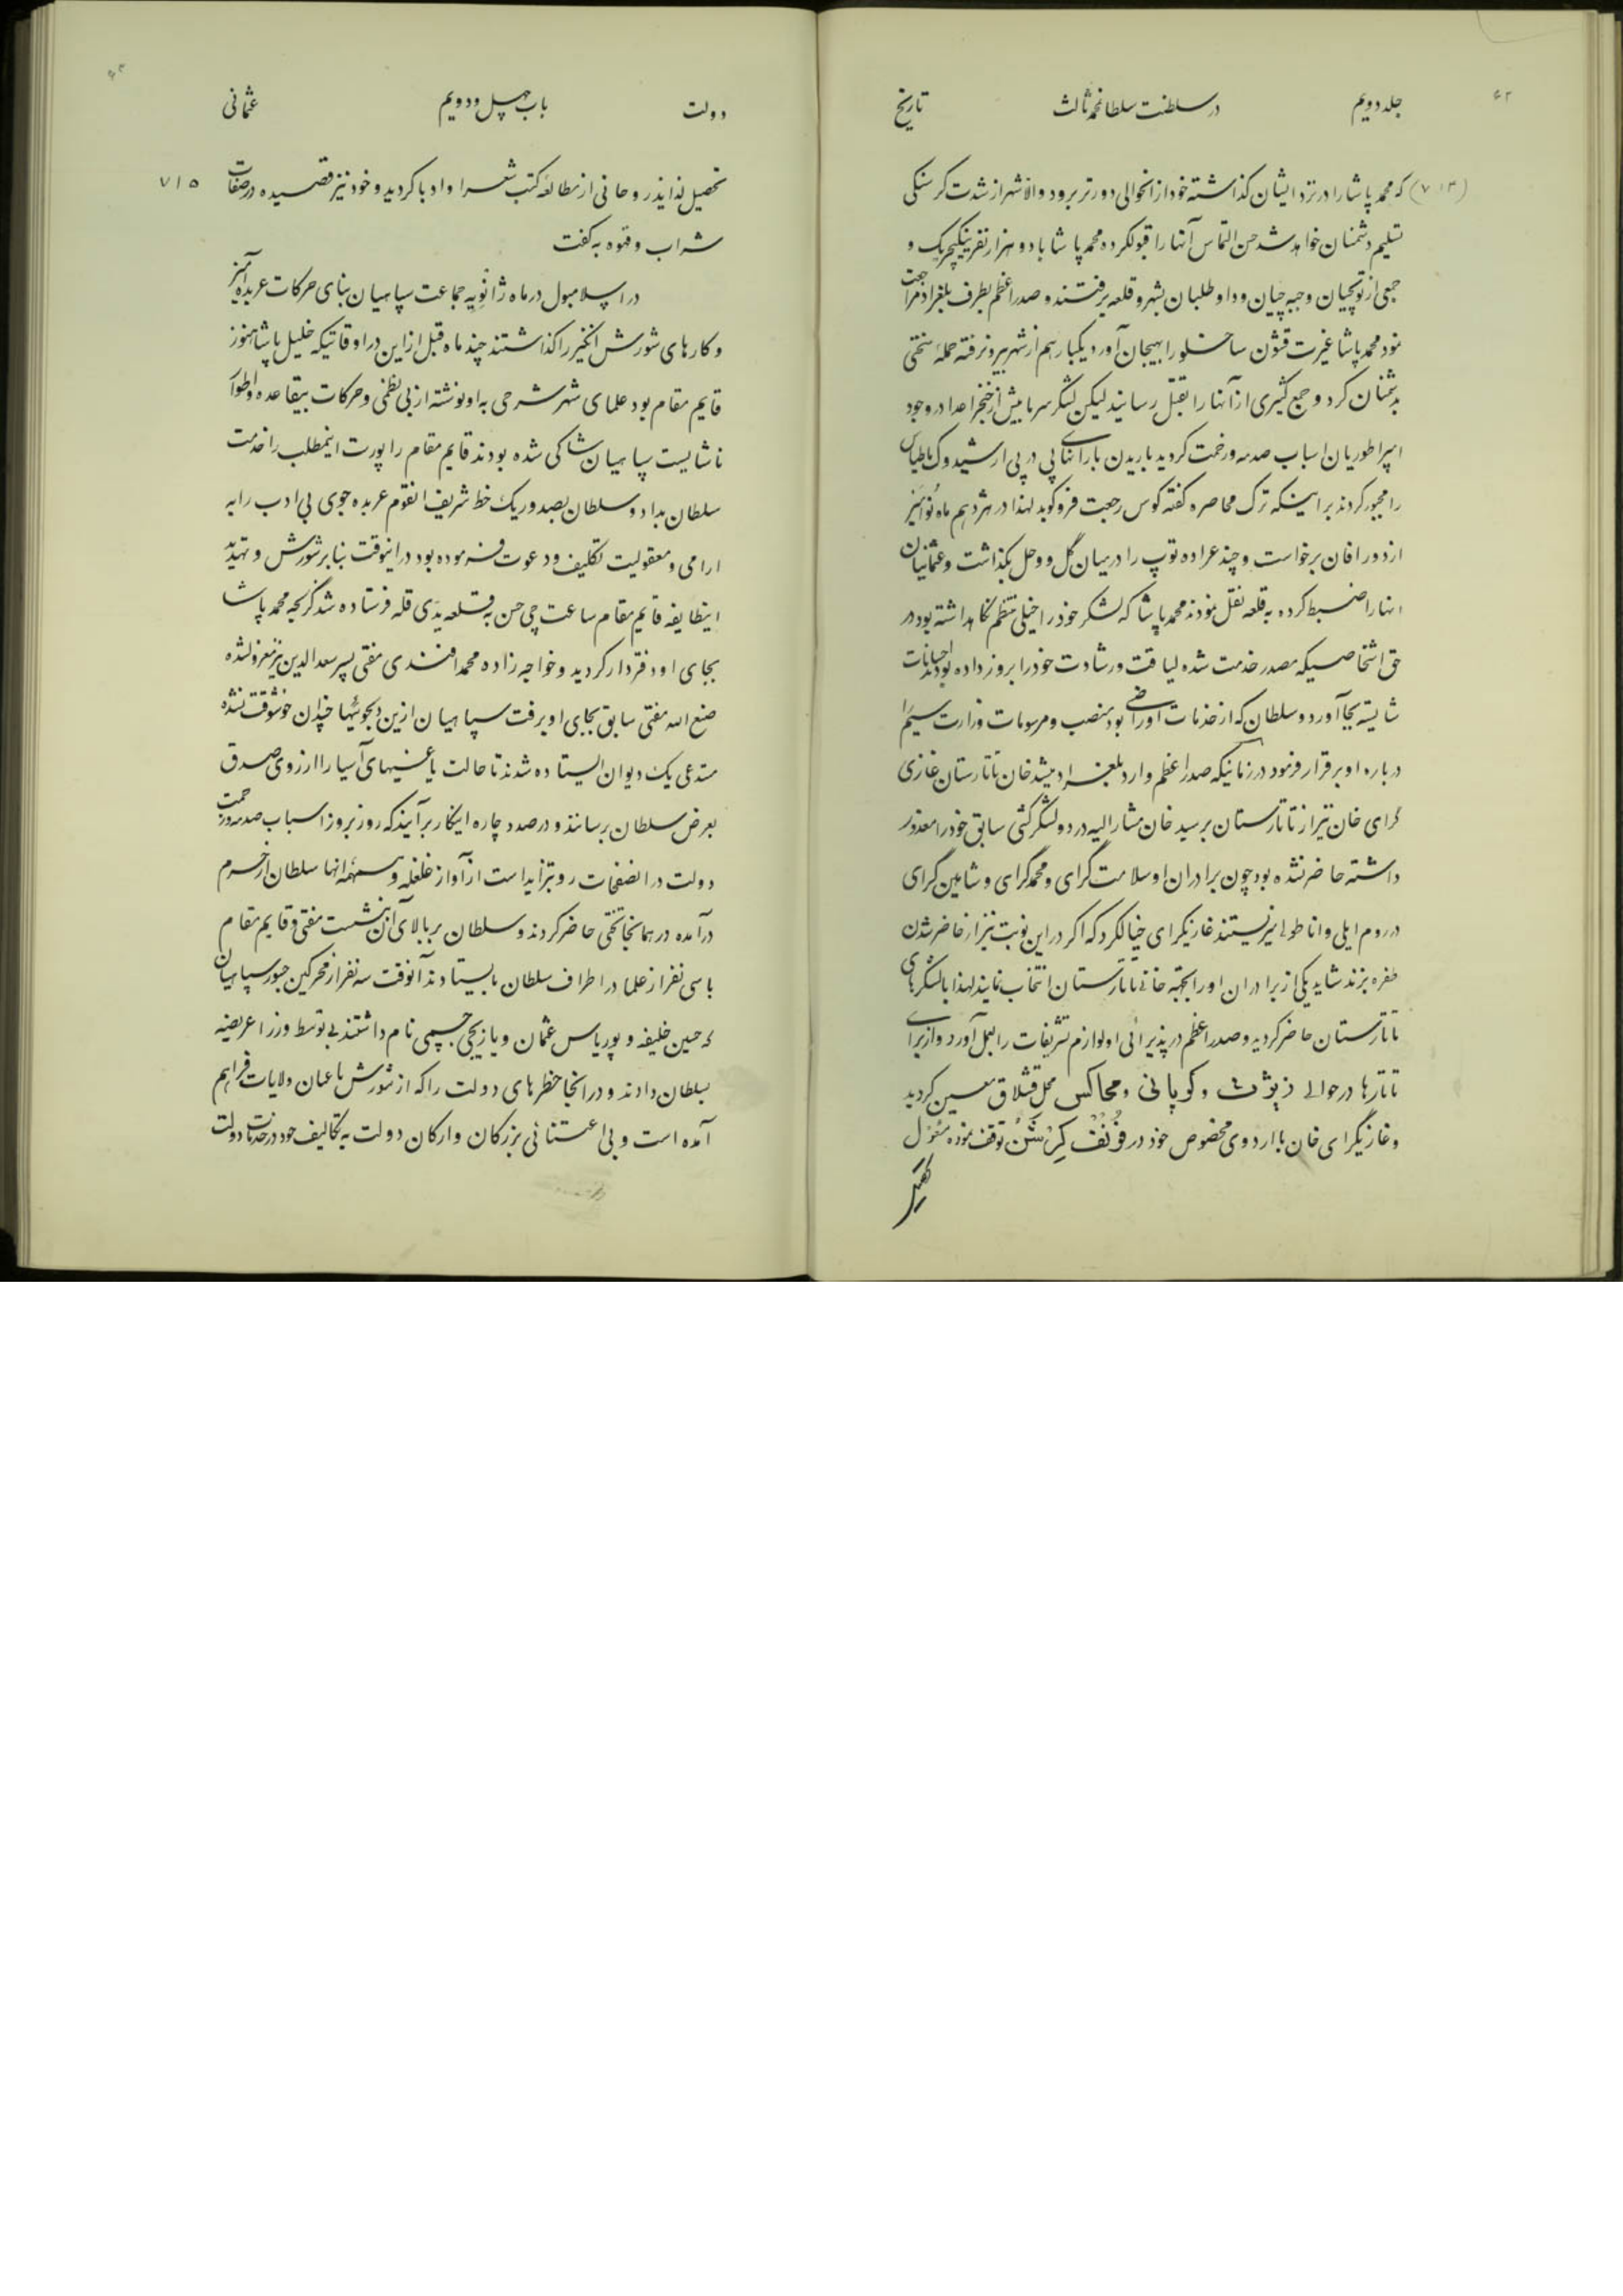 جلد دویم در سلطنت سلطانمحمد ثالث تاریخ
که محمد پاشا را در نزد ایشان گذاشته خود از انحوالی دورتر برود والا شهر از شدت کرسنکی
تسلیم دشمنان خواهد شد حسن التماس آنها را قبولکرده محمد پاشا با دو هزار نفر ینکیچریک و
جمعی از توپچیان و جبه چیان و داوطلبان بشهر و قلعه برفتند و صدر اعظم بطرف بلغراد مراجعت
نمود محمد پاشا غیرت قشون ساخلو را بهیجان آورد یکبار هم از شهر بیرونرفته حملهٔ سختی
بدشمنان کرد و جمع کثیری از آنها را بقتل رسانید لیکن لشکر سرما بیش از خنجر اعدا در وجود
امپراطوریان اسباب صدمه و زحمت کردید باریدن بارانهای پی در پی ارشیدوک ماطیاس
را مجبور کردند بر اینکه ترک محاصره کفته کوس رجعت فرو کوبد لهذا در هژدهم ماه نوامبر
از دور افان برخواست و چند عراده توپ را در میان گل و وحل بگذاشت و عثمانیان
انها را ضبط کرده به قلعه نقل نمودند محمد پاشا که لشکر خود را خیلی منتظم نکاهداشته بود در
حق اشخاصیکه مصدر خدمت شده لیاقت و رشادت خود را بروز داده بودند احسانات
شایسته بجا آورد و سلطان که از خدمات او راضی بود منصب و مرسومات وزارت سیم را
درباره او برقرار فرمود در زمانیکه صدر اعظم وارد بلغراد میشد خان تاتارستان غازی
کرای خان نیز از تاتارستان برسید خان مشار الیه در دو لشکرکشی سابق خود را معذور
داشته حاضر نشده بود چون برادران او سلامت گرای و محمد گرای و شاهین گرای
در روم ایلی و اناطولی میزیستند غازیکرای خیالکرد که اکر در این نوبت نیز از حاضر شدن
طفره بزند شاید یکی از برادران او را بجهة خانی تاتارستان انتخاب نمایند لهذا با لشکرهای
تاتارستان حاضر کردید و صدر اعظم در پذیرائی او لوازم تشریفات را بعمل آورد و از برای
تاتارها در حوالی و کوپانی و محاکس محل قشلاق معین کردید
و غازیگرای خان با اردوی مخصوص خود در توقف نموده مشغول
دولت باب چهل و دویم عثمانی
۷۱۵
تحصیل لذایذ روحانی از مطالعهٔ کتب شعرا و ادبا کردید و خود نیز قصیده در صفات
شراب و قهوه به کفت
در اسلامبول در ماه ژانویه جماعت سپاهیان بنای حرکات عربده آمیز
و کارهای شورش انکیز را کذاشتند چند ماه قبل از این در اوقاتیکه خلیل پاشا هنوز
قایم مقام بود علمای شهر شرحی به او نوشته از بی نظمی و حرکات بیقاعده و اطوار
ناشایست سپاهیان شاکی شده بودند قایم مقام راپورت اینمطلب را خدمت
سلطان بداد و سلطان بصدور یک خط شریف انقوم عربده جوی بی ادب را به
ارامی و معقولیت تکلیف و دعوت فرموده بود در اینوقت بنا بر شورش و تهدید
اینطایفه قایم مقام ساعت چی حسن به قلعه یدی قله فرستاده شد کرنجه محمد پاشا
بجای او دفتردار کردید و خواجه زاده محمد افندی مفتی پسر سعد الدین نیز معزولشده
صنع الله مفتی سابق بجای او برفت سپاهیان ازین دلجوئیها چندان خوشوقت نشده
مستدعی یک دیوان ایستاده شدند تا حالت یاغیهای آسیا را از روی صدق
بعرض سلطان برسانند و در صدد چاره اینکار برآیند که روز بروز اسباب صدمه و زحمت
دولت در انصفحات رو بتزاید است از آواز غلغله و همهمه انها سلطان از حرم
درآمده در همانجا تختی حاضر کردند و سلطان بر بالای آن بنشست مفتی و قایم مقام
با سی نفر از علما در اطراف سلطان بایستادند آنوقت سه نفر از محرکین جسور سپاهیان
که حسین خلیفه و پوریاس عثمان و یازیجی نام داشتند بی توسط وزرا عریضه
بسلطان دادند و در انجا خطرهای دولت را که از شورش یاغیان ولایات فراهم
آمده است و بی اعتنائی بزرکان و ارکان دولت به تکالیف خود در خدمات دولت